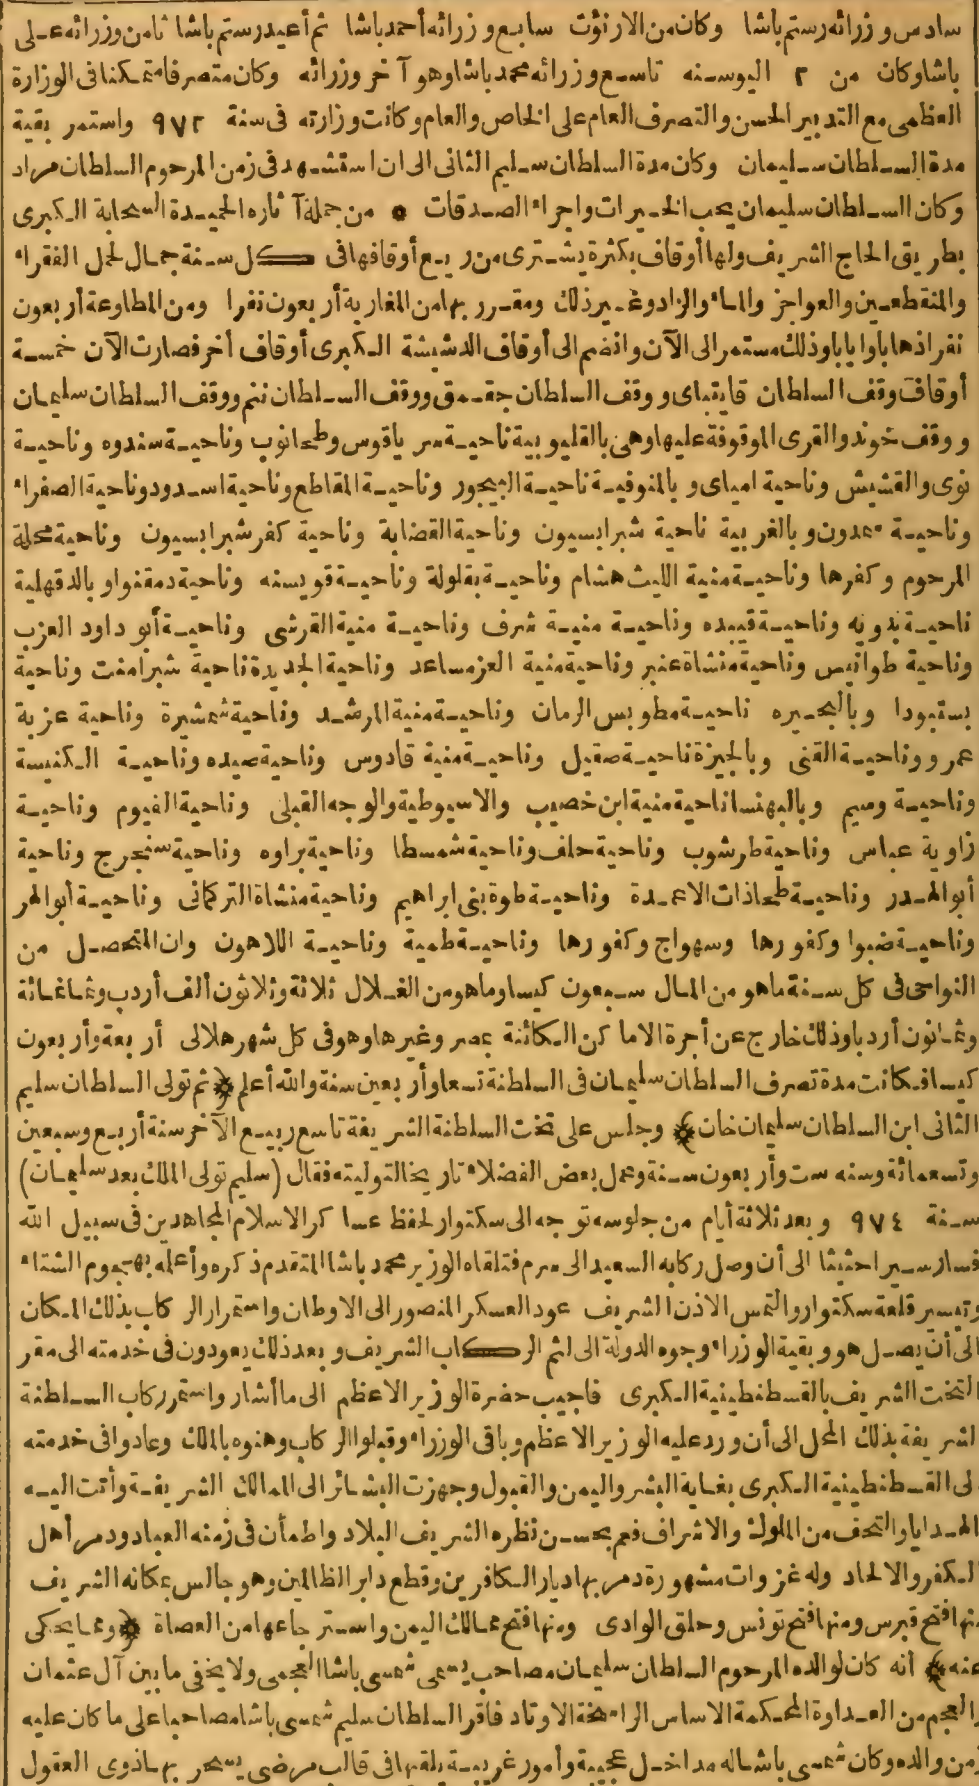 سادس وزرائه رستم باشا وكان من الارنؤت سابع وزرائه أحمد باشا ثم أعيد رستم باشا ثامن وزرائه على
باشا وكان من ٢ اليوسنه تاسع وزرائه محمد باشا وهو آخر وزرائه وكان متصرفا متمكنا فى الوزارة
العظمى مع التدبير الحسن والتصرف العام على الخاص والعام وكانت وزارته فى سنة ٩٧٢ واستمر بقية
مدة السلطان سليمان وكان مدة السلطان سليم الثانى الى ان استشهد فى زمن المرحوم السلطان مراد
وكان السلطان سليمان يحب الخيرات واجراء الصدقات * من جملة آثاره الحميدة السحابة الكبرى
بطريق الحاج الشريف ولها أوقاف بكثرة يشترى من ريع أوقافها فى كل سنة جمال لحمل الفقراء
والمنقطعين والعواجز والماء والزاد وغير ذلك ومقرر بها من المغاربة أربعون نفرا ومن المطاوعة أربعون
نفرا ذهابا وايابا وذلك مستمر الى الآن وانضم الى أوقاف الدشيشة الكبرى أوقاف أخر فصارت الآن خمسة
أوقاف وقف السلطان قايتباى ووقف السلطان جقمق ووقف السلطان ننم ووقف السلطان سليمان
ووقف خوند والقرى الموقوفة عليها وهى بالقليوبية ناحية سرياقوس وطحانوب وناحية سندوه وناحية
نوى والقشيش وناحية امياى وبالمنوفية ناحية البيجور وناحية المقاطع وناحية اسدود وناحية الصفراء
وناحية معدون وبالغربية ناحية شبرابسيون وناحية القضابة وناحية كفر شبرابسيون وناحية محلة
المرحوم وكفرها وناحية منية الليث هشام وناحية بقلولة وناحية قويسنه وناحية دمقنواو بالدقهلية
ناحية بدويه وناحية قبيده وناحية منية شرف وناحية منية القرشى وناحية أبو داود العزب
وناحية طوانيس وناحية منشاة عنبر وناحية منية العز مساعد وناحية الجديدة ناحية شبرامنت وناحية
بستيودا وبالبحيره ناحية مطوبس الرمان وناحية منية المرشد وناحية شمشيرة وناحية عزبة
عمرو وناحية القنى وبالجيزة ناحية صقيل وناحية منية قادوس وناحية صيده وناحية الكنيسة
وناحية وسيم وبالبهنسا ناحية منية ابن خصيب والاسيوطية والوجه القبلى وناحية الفيوم وناحية
زاوية عباس وناحية طرشوب وناحية حلف وناحية شمسطا وناحية براوه وناحية سنجرج وناحية
أبو الهدر وناحية طحا ذات الاعمدة وناحية طوة بنى ابراهيم وناحية منشاة التركمانى وناحية أبو الهر
وناحية ضبوا وكفورها وسهواج وكفورها وناحية طمية وناحية اللاهون وان المتحصل من
النواحى فى كل سنة ماهو من المال سبعون كيسا وماهو من الغلال ثلاثة وثلاثون ألف أردب وثمانمائة
وثمانون أردبا وذلك خارج عن أجرة الاماكن الكائنة بمصر وغيرها وهو فى كل شهر هلالى أربعة وأربعون
كيسا فكانت مدة تصرف السلطان سليمان فى السلطنة تسعا وأربعين سنة والله أعلم ﴿ ثم تولى السلطان سليم
الثانى ابن السلطان سليمان خان ﴾ وجلس على تخت السلطنة الشريفة تاسع ربيع الآخر سنة أربع وسبعين
وتسعمائة وسنه ست وأربعون سنة وعمل بعض الفضلاء تاريخا لتوليته فقال (سليم تولى الملك بعد سليمان)
سنة ٩٧٤ وبعد ثلاثة أيام من جلوسه توجه الى سكتوار لحفظ عساكر الاسلام المجاهدين فى سبيل الله
فسار سيرا حثيثا الى أن وصل ركابه السعيد الى صرم فتلقاه الوزير محمد باشا المتقدم ذكره وأعلمه بهجوم الشتاء
وتيسير قلعة سكتوار والتمس الاذن الشريف عود العسكر المنصور الى الاوطان واستمرار الركاب بذلك المكان
الى أن يصل هو وبقية الوزراء وجوه الدولة الى لثم الركاب الشريف وبعد ذلك يعودون فى خدمته الى مقر
التخت الشريف بالقسطنطينية الكبرى فاجيب حضرة الوزير الاعظم الى ما أشار واستمر ركاب السلطنة
الشريفة بذلك المحل الى أن ورد عليه الوزير الاعظم وباقى الوزراء وقبلوا الركاب وهنوه بالملك وعادوا فى خدمته
لى القسطنطينية الكبرى بغاية البشر واليمن والقبول وجهزت البشائر الى الممالك الشريفة وأتت اليه
الهدايا والتحف من الملوك والاشراف فعم بحسن نظره الشريف البلاد واطمأن فى زمنه العباد ودمر أهل
الكفر والالحاد وله غزوات مشهورة دمر بها ديار الكافرين وقطع دابر الظالمين وهو جالس بمكانه الشريف
منها فتح قبرس ومنها فتح تونس وحلق الوادى ومنها فتح ممالك اليمن واسترجاعها من العصاة ﴿ ومما يحكى
عنه ﴾ أنه كان لوالده المرحوم السلطان سليمان مصاحب يسمى شمسى باشا العجمى ولا يخفى ما بين آل عثمان
والعجم من العداوة المحكمة الاساس الراسخة الاوتاد فاقر السلطان سليم شمسى باشا مصاحبا على ما كان عليه
زمن والده وكان شمسى باشا له مداخل عجيبة وأمور غريبة يلقيها فى قالب مرضى يسحر بها ذوى العقول